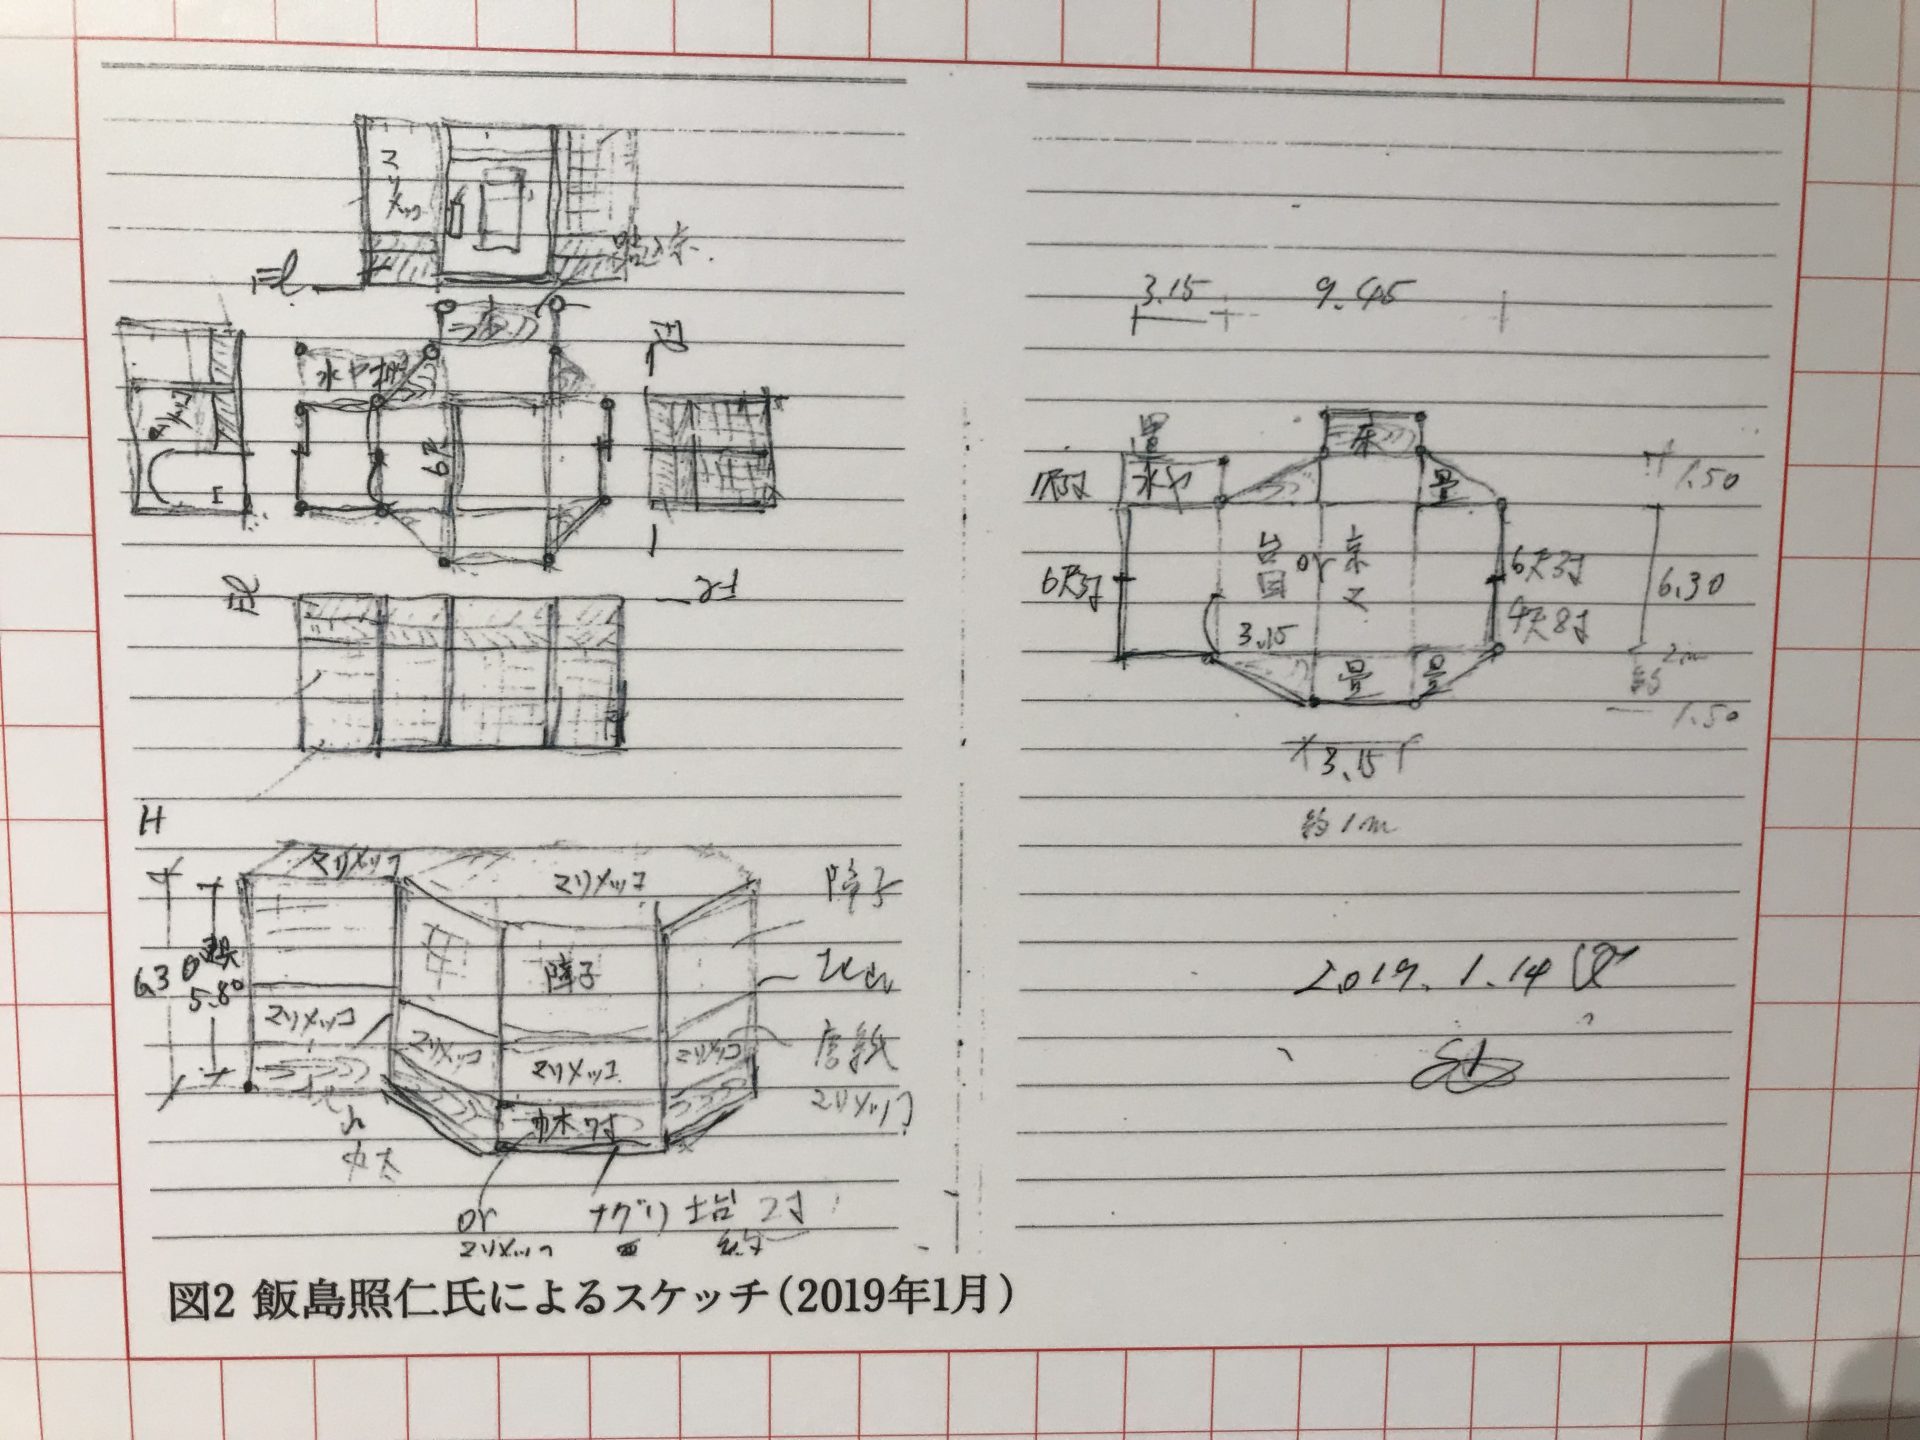 マリメッコ
FL
踏込床
床
水ヤ棚
6尺
マリメッコ
FL
FL
H
マリメッコ
マリメッコ
障子
6.30
5.80
障子
マリメッコ
マリメッコ
マリメッコ
マリメッコ
唐紙
マリメッコ
巾木 7寸
丸太
or
マリメッコ
ナグリ
2寸
3.15
9.45
畳
床
水ヤ
畳
1.50
台目 or 京マ
6尺3寸
6尺3寸
4尺8寸
6.30
3.15
畳
畳
約2m
1.50
3.15
約1m
2019.1.14
図2 飯島照仁氏によるスケッチ(2019年1月)